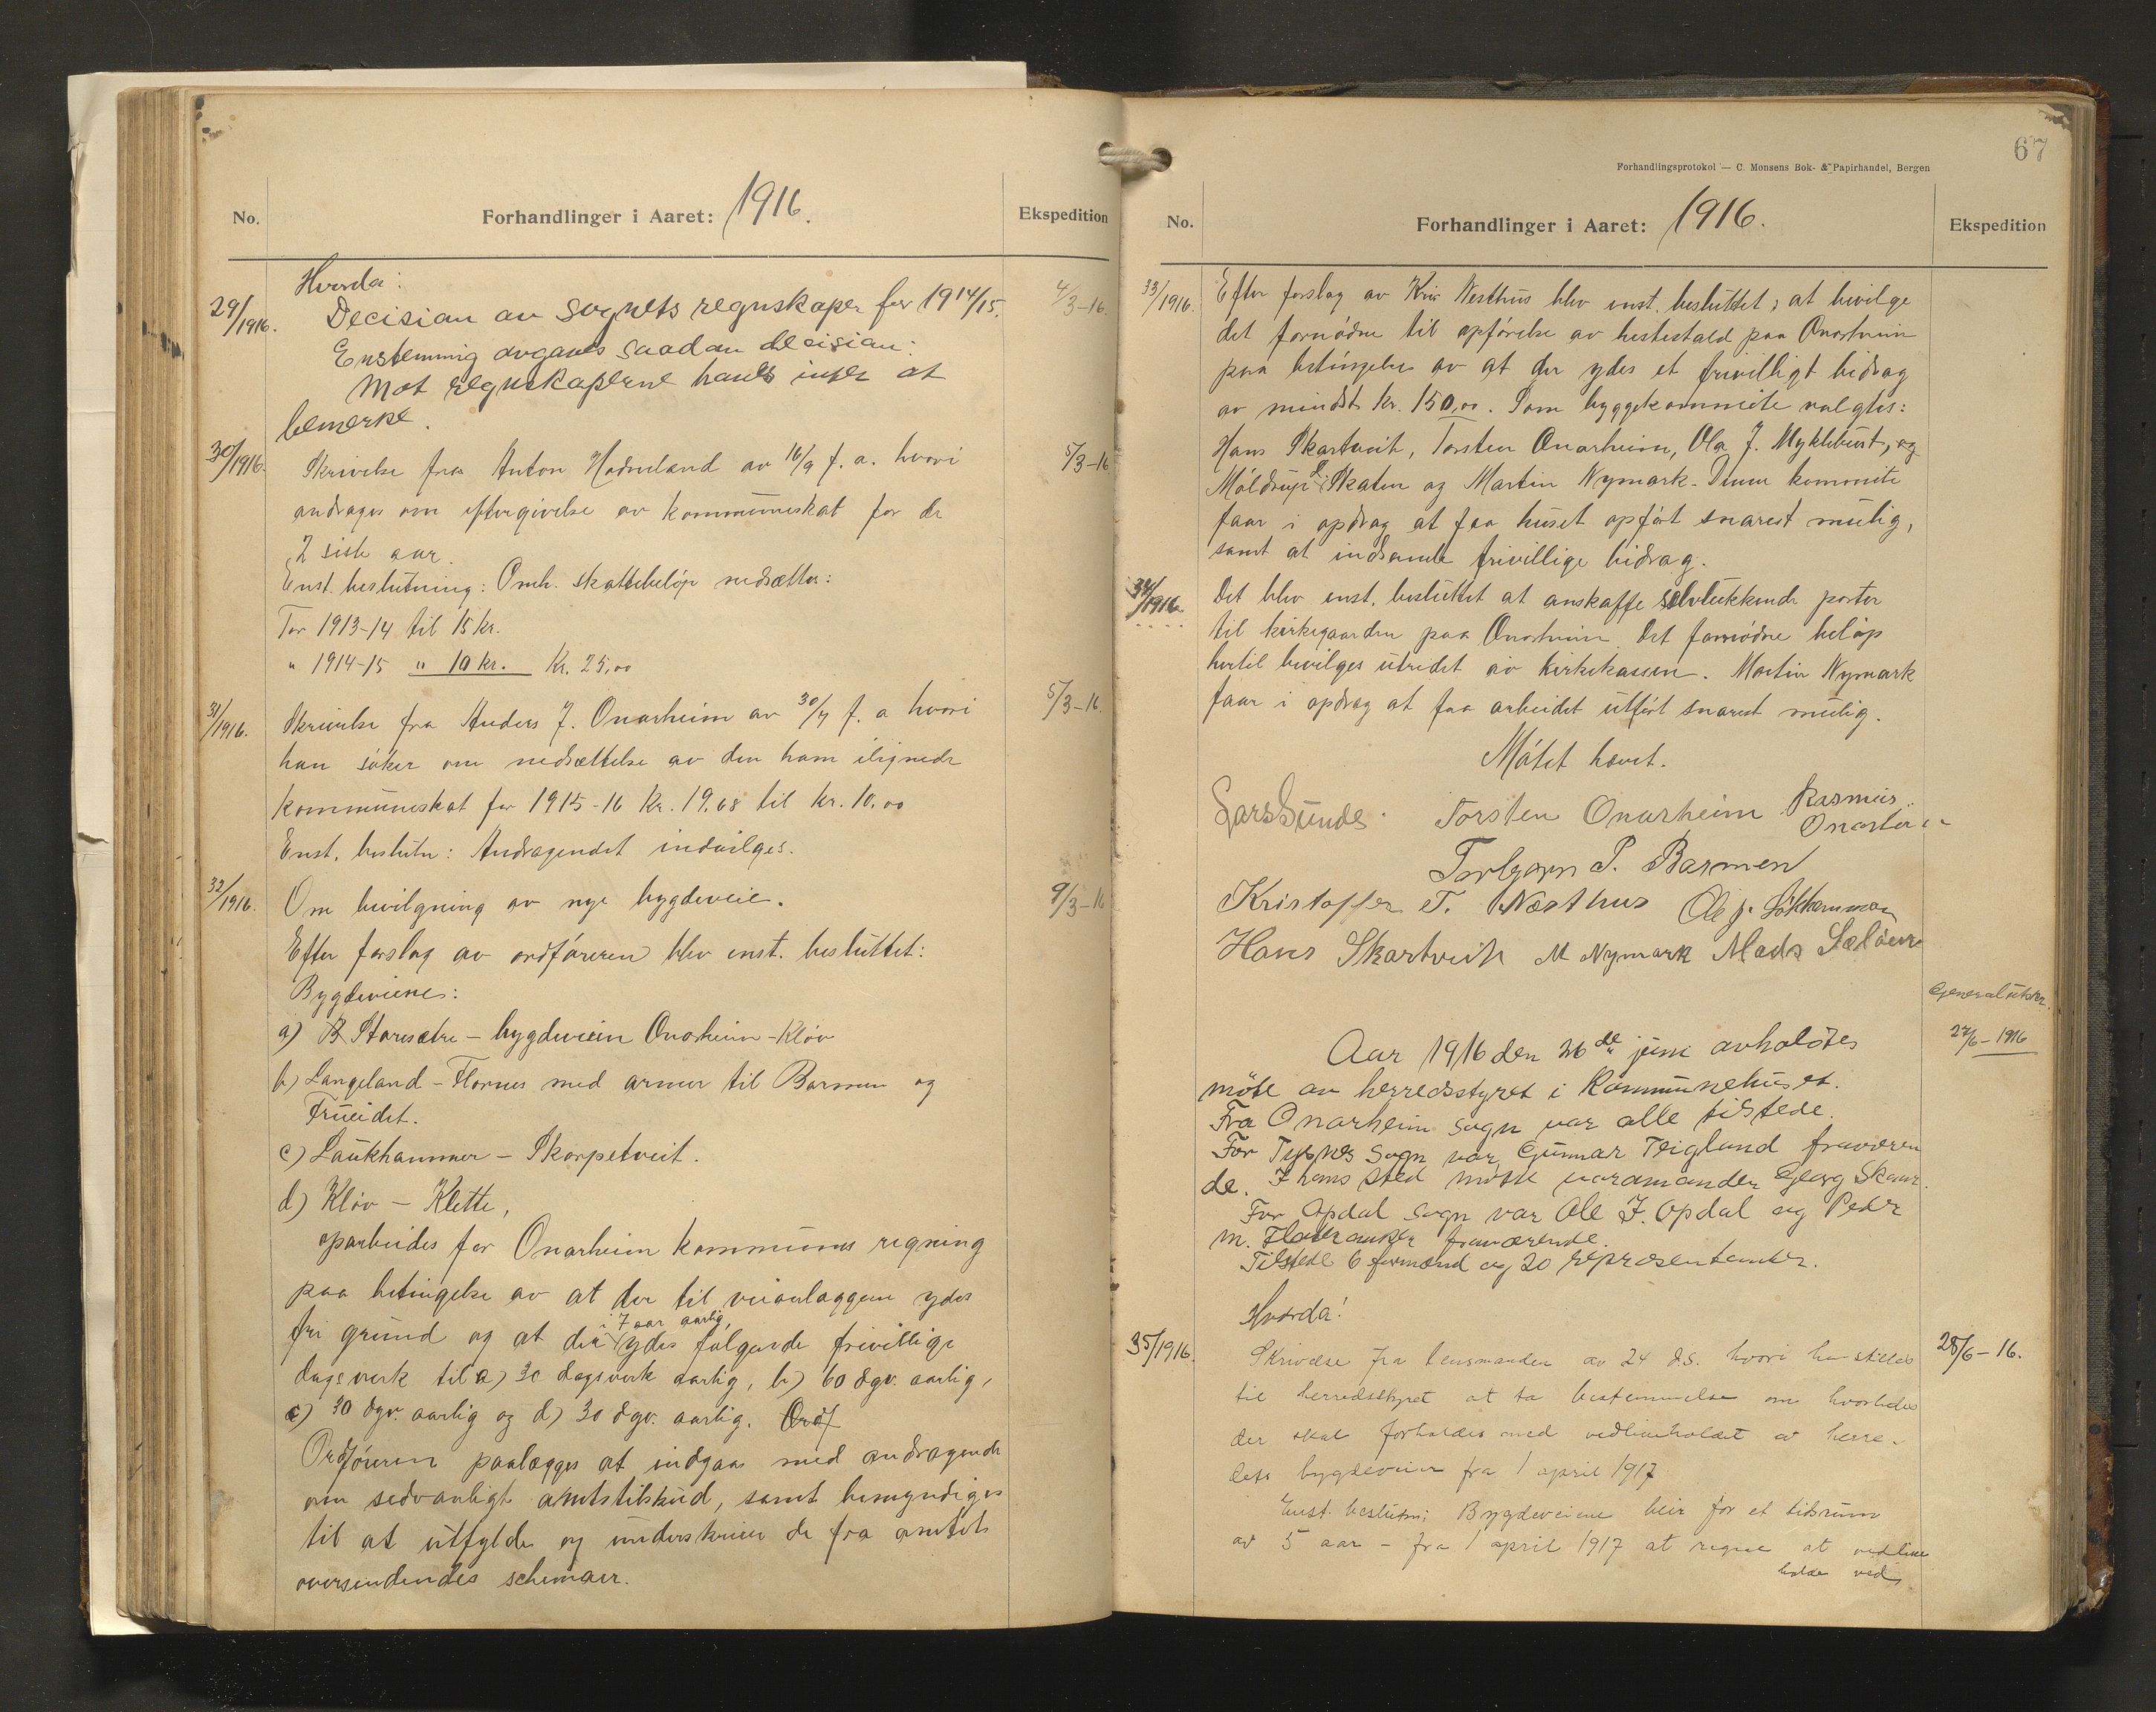 No.
Forhandlinger i Aaret: 1916.
Ekspedition
Hvorda:
29/1916.
Decision av sognets regnskaper for 1914/15.
4/3-16.
Enstemmig avgaves saadan decision:
Mot regnskaperne haves intet at
bemerke.
30/1916.
Skrivelse fra Anton Hodneland av 16/9 f. a. hvori
5/3-16
andrages om eftergivelse av kommuneskat for de
2 siste aar.
Enst. beslutning: Omh. skattebeløp nedsættes:
For 1913-14 til 15 kr.
" 1914-15 " 10 kr. Kr. 25,00
31/1916.
Skrivelse fra Anders J. Onarheim av 30/7 f. a hvori
5/3-16.
han søker om nedsættelse av den ham ilignede
kommuneskat for 1915-16 Kr. 19.68 til kr. 10.00
Enst. beslutn: Andragendet indvilges.
32/1916.
Om bevilgning av nye bygdeveie.
9/3-16
Efter forslag av ordføreren blev enst. besluttet:
Bygdeveiene:
a) Staresætre - bygdeveien Onarheim - Kløv
b) Langeland - Flornes med armer til Barmen og
Trueidet.
c) Laukhammer - Skorpetveit.
d) Kløv - Klette,
oparbeides for Onarheim kommunes regning
paa betingelse av at der til veianlæggene ydes
fri grund og at der i 7 aar aarlig, ydes følgende frivillige
dagsverk til a) 30 dagsverk aarlig, b) 60 dgv. aarlig,
c) 30 dgv. aarlig og d) 30 dgv. aarlig. Ordf
Ordføreren paalægges at indgaa med andragende
om sedvanligt amtstilskud, samt bemyndiges
til at utfylde og underskrive de fra amtet
oversendendes schemaer.
67
Forhandlingsprotokol — C. Monsens Bok- & Papirhandel, Bergen
No.
Forhandlinger i Aaret: 1916.
Ekspedition
33/1916.
Efter forslag av Kris Nesthus blev enst. besluttet; at bevilge
det fornødne til opførelse av hestestald paa Onarheim
paa betingelse av at der ydes et frivilligt bidrag
av mindst kr. 150,00. Som byggekommite valgtes:
Hans Skartveit, Torsten Onarheim, Ola J. Myklebust, og
Møldrup Skaten og Martin Nymark. Denne kommite
faar i opdrag at faa huset opført snarest mulig,
samt at indsamle frivillige bidrag.
34/1916.
Det blev enst. besluttet at anskaffe selvlukkende porter
til kirkegaarden paa Onarheim. Det fornødne beløp
hertil bevilges utredet av kirkekassen. Martin Nymark
faar i opdrag at faa arbeidet utført snarest mulig.
Møtet hævet.
Lars Sunde. Torsten Onarheim Rasmus
Onarheim
Torbjørn P. Barmen
Kristoffer T. Næsthus Ole J.
Hans Skartveit M Nymark Mads
Generalutskr.
27/6-1916
Aar 1916 den 26de juni avholdtes
møte av herredsstyret i Kommunehuset.
Fra Onarheim sogn var alle tilstede.
For Tysnes sogn var Gunnar Teigland fraværen
de. I hans sted møtte varamanden Georg
For Opdal sogn var Ole J. Opdal og Peder
M. fraværende.
Tilstede 6 formænd og 20 repræsentanter.
Hvorda!
35/1916.
Skrivelse fra lensmanden av 24 ds. hvori han stilles
28/6-16.
til herredsstyret at ta bestemmelse om hvorledes
der skal forholdes med vedlikeholdet av herre-
dets bygdeveier fra 1 april 1917
Enst. beslutn: Bygdeveiene blir for et tidsrum
av 5 aar - fra 1 april 1917 at regne at vedlike
holde ved